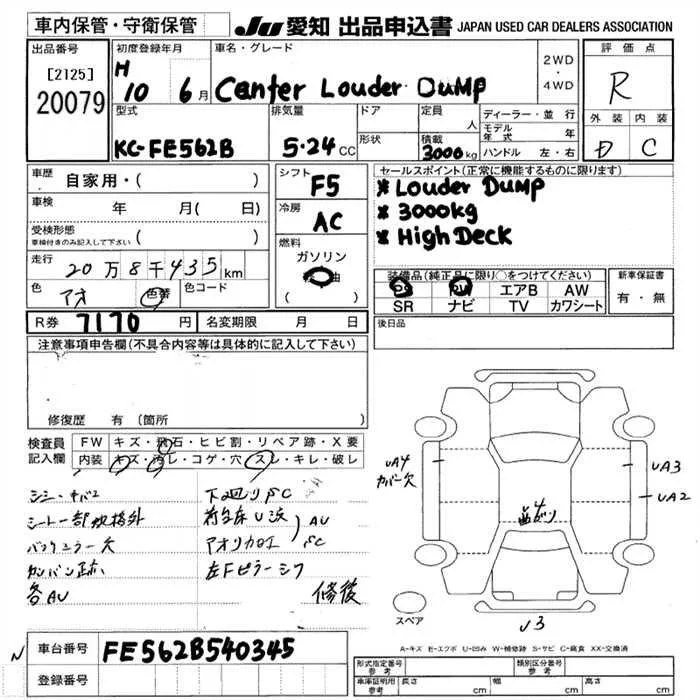 車内保管・守衛保管
JU 愛知 出品申込書 JAPAN USED CAR DEALERS ASSOCIATION
出品番号
[2125]
20079
初度登録年月
H
10 6月
車名・グレード
Center Louder Dump
2WD
・
4WD
評価点
R
外装 内装
D C
型式
KC-FE562B
排気量
5.24 CC
ドア
形状
定員
人
積載
3000kg
ディーラー・並行
モデル年式 年
ハンドル 左・右
車歴
自家用・( )
車検
年 月( 日)
受検形態
車検付きのみ記入して下さい ( )
走行
20万8千435km
色
アオ
色替
色コード
シフト
F5
冷房
AC
燃料
ガソリン
油
セールスポイント(正常に機能するものに限ります)
* Louder Dump
* 3000kg
* High Deck
装備品(純正品に限り○をつけてください)
PS PW エアB AW
SR ナビ TV カワシート
新車保証書
有・無
R券 7170円
名変期限 月 日
後日品
注意事項申告欄(不具合内容等は具体的に記入して下さい)
修復歴 有(箇所 )
検査員
記入欄
FW キズ・飛石・ヒビ割・リペア跡・X要
内装 キズ・汚レ・コゲ・穴・スレ・キレ・破レ
下廻りSC
アオリカロエ
左Fピラーシワ
各AU
修復
UA4
カバー欠
UA3
UA2
U3
スペア
A-キズ E-エクボ U-凹み W-補修跡 S-サビ C-腐食 XX-交換済
N
車台番号
FE562B540345
登録番号
形式指定番号
類別区分番号
車庫証明用
参考
長さ cm 幅 cm 高さ cm